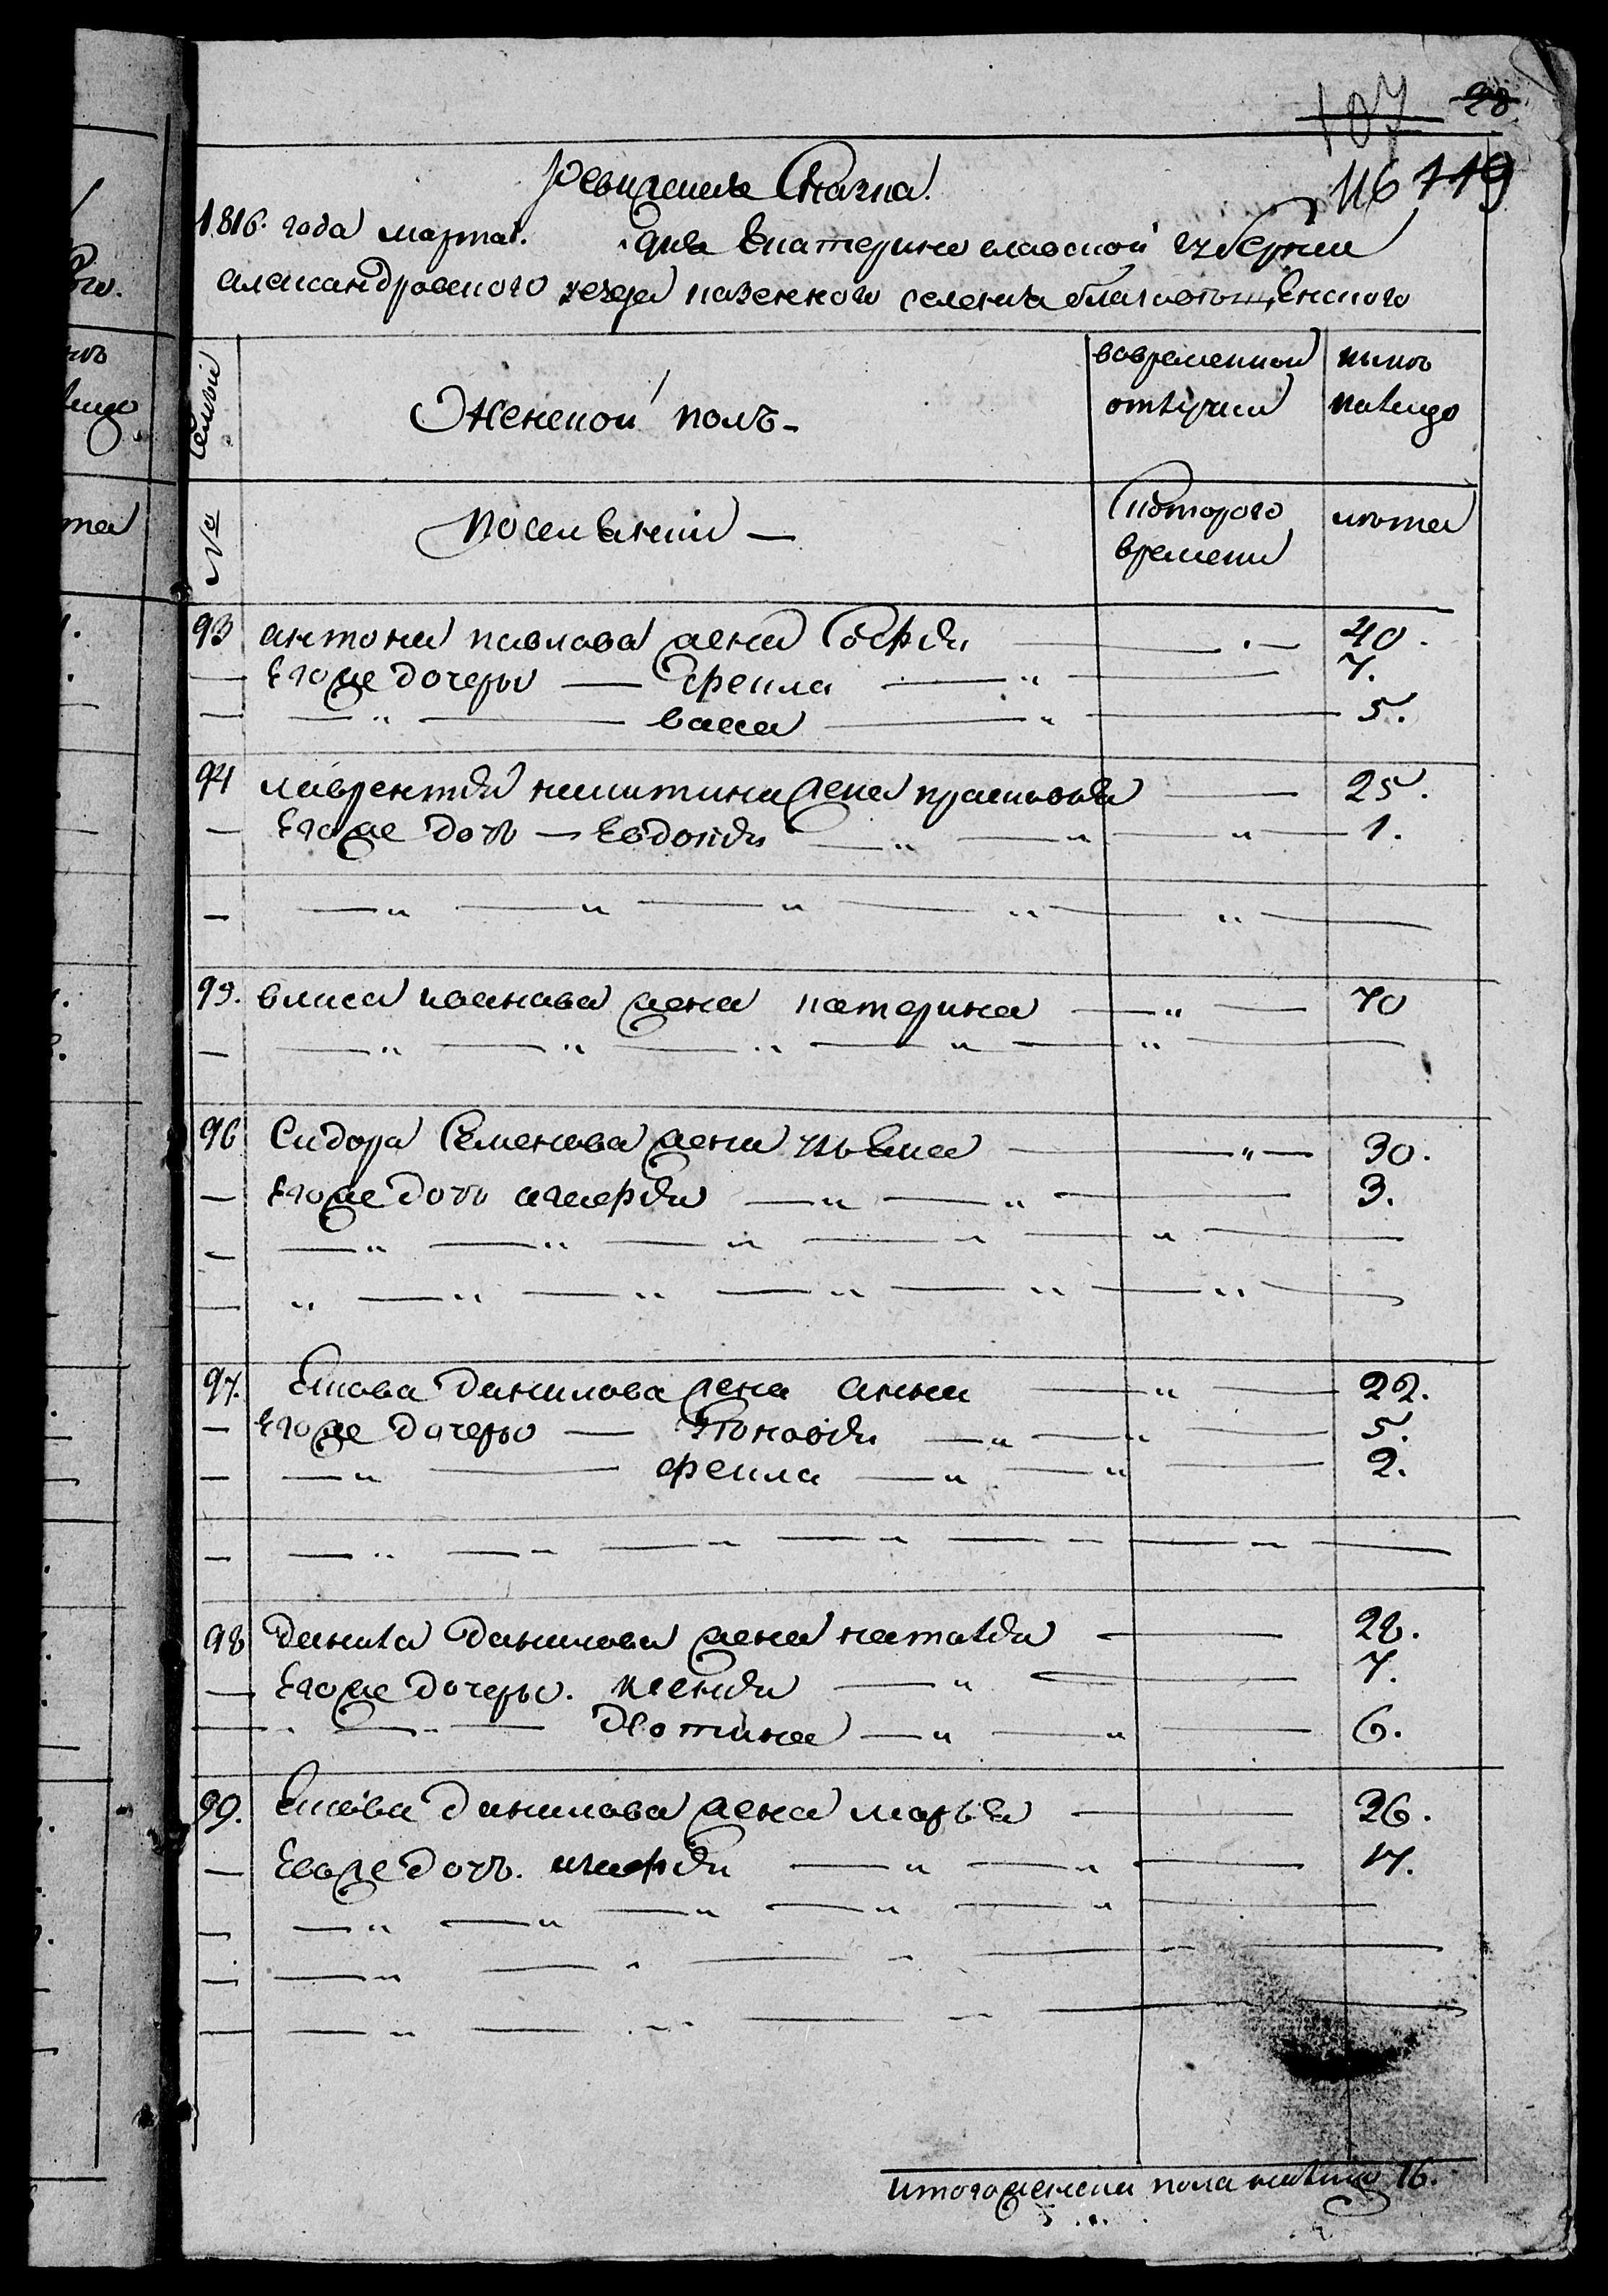 107 98
116 119
Ревизская Сказка.
1816. года марта. дня Екатеринославской губернии
александровского уезда казенного селения благовещенского
Семьи
Женской полъ
вовременной
отлучки
ныне
налицо
№
поселянки —
Скоторого
времени
лета
93 антона павлова жена Софiя — 40.
— Егоже дочеры — фекла — 7.
— " — васса — 5.
94 лаврентiя никитина жена прасковья — 25.
— Егоже дочь — Евдокiя — 1.
95. власа иванова жена катерина — 70
96 Сидора Семенова жена ульяна — 30.
— Егоже дочь агафiя — 3.
97. Якова данилова жена анна — 22.
— Егоже дочеры — — 5.
— " — фекла — 2.
98 данила данилова жена наталiя — 28.
— Егоже дочеры. ксенiя — 7.
— " — — 6.
99. Якова данилова жена марья — 36.
— Евоже дочь. агафiя — 17.
итого женска пола налицо 16.